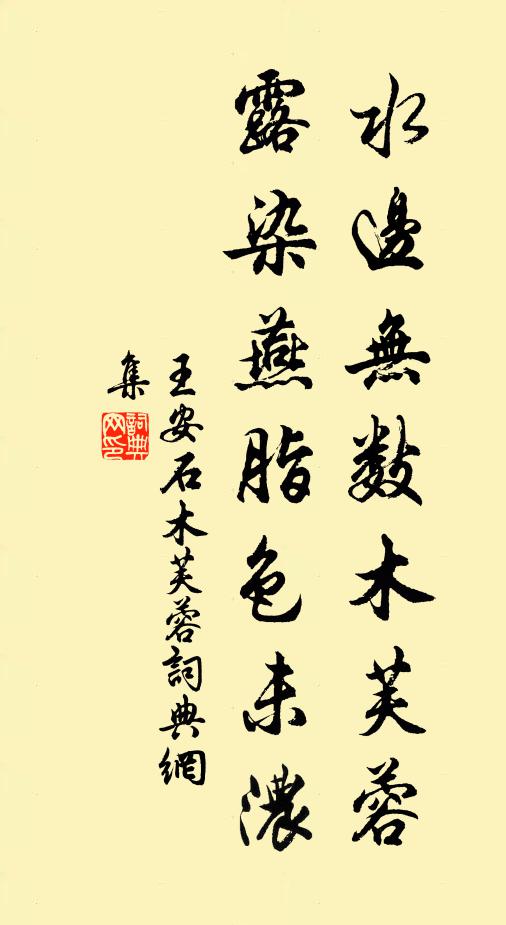 水邊無數木芙蓉
露染燕脂色未濃
王安石木芙蓉詞典網
集
詞典網印